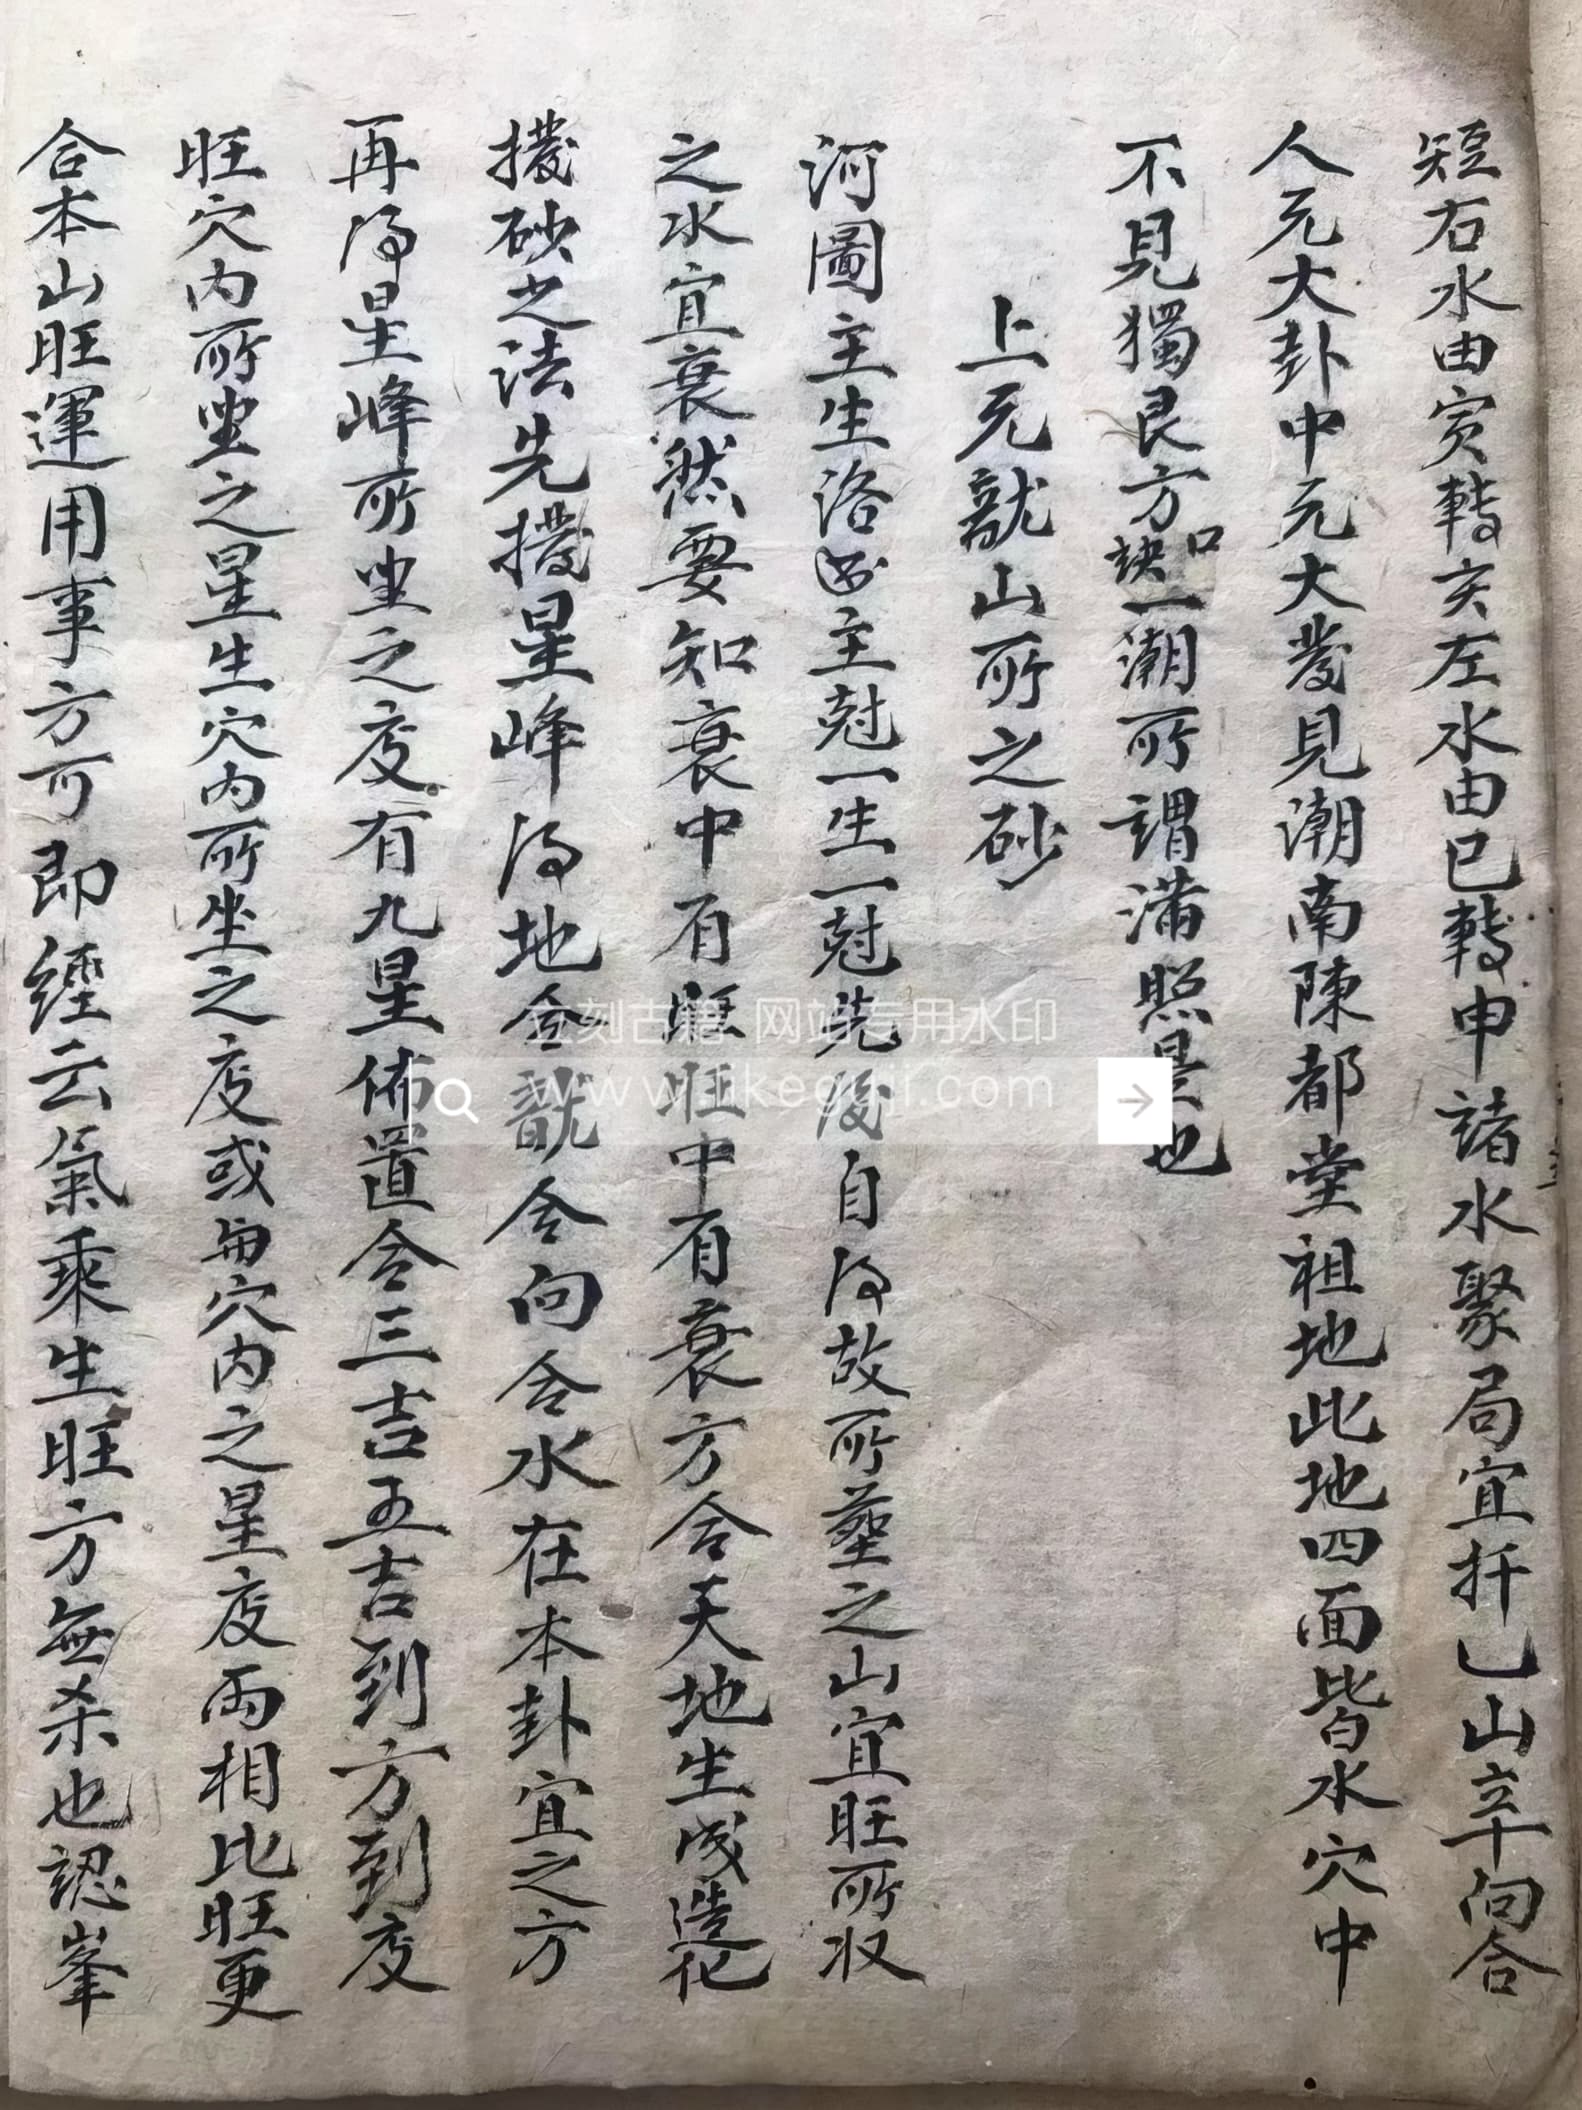 短右水由寅轉亥左水由巳轉申諸水聚局宜扦乙山辛向合
人元大卦中元大發見潮南陳都堂祖地此地四面皆水穴中
不見獨艮方口訣一潮所謂滿照是也
上元龍山所之砂
河圖主生洛書主尅一生一尅先後自得故所塟之山宜旺所収
之水宜衰然要知衰中有旺旺中有衰方合天地生成造化
撥砂之法先撥星峰得地合龍合向合水在本卦宜之方
再得星峰所坐之度有九星佈置合三吉五吉到方到度
旺穴内所坐之星生穴内所坐之度或與穴内之星度両相比旺更
合本山旺運用事方可即經云氣乘生旺方無杀也認峯
立刻古籍 网站专用水印
www.likeguji.com